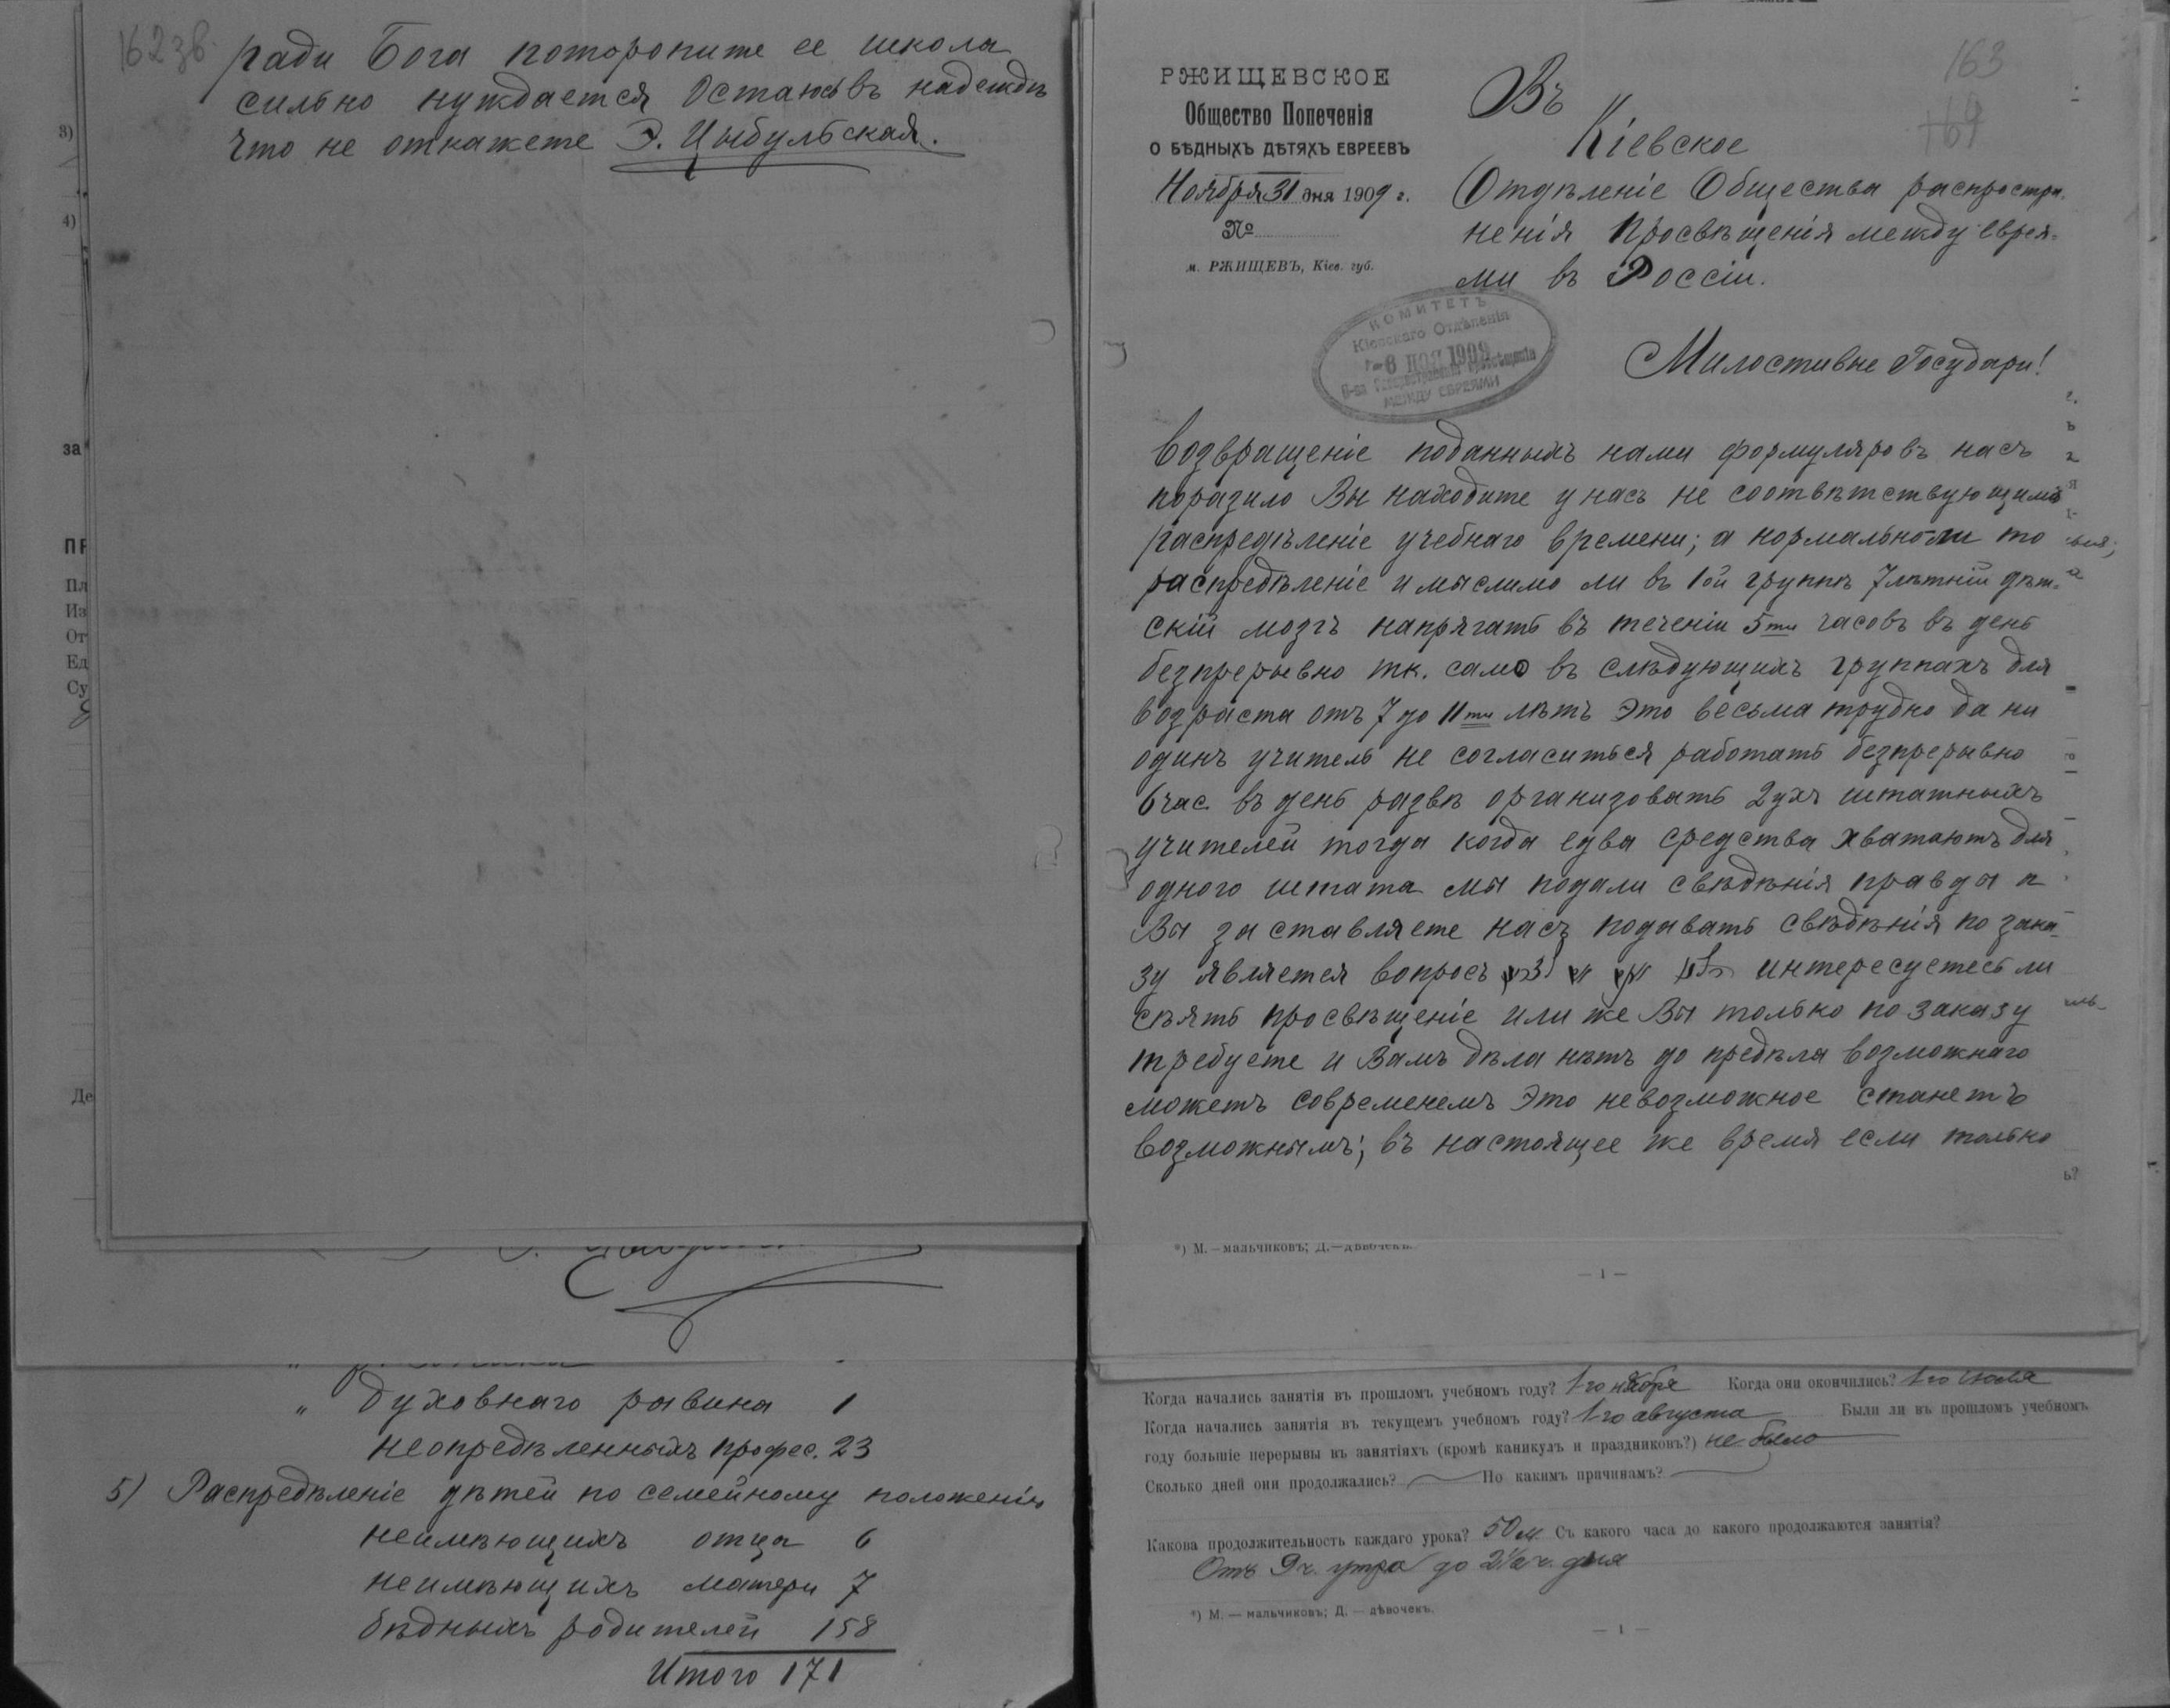 162 зв.
ради Бога поторопите ее школа
сильно нуждается Остаюсь въ надеждѣ
что не откажете Э. Цыбульская.
3)
4)
за
Пл
Из
От
Ед
Су
Де
„ духовнаго равина 1
неопредѣленныхъ профес. 23
5) Распредѣленіе дѣтей по семейному положенію
неимѣющихъ отца 6
неимѣющихъ матери 7
бѣдныхъ родителей 158
Итого 171
163
169
РЖИЩЕВСКОЕ
Общество Попеченія
О БѢДНЫХЪ ДѢТЯХЪ ЕВРЕЕВЪ
Ноября 31 дня 1909 г.
№
м. РЖИЩЕВЪ, Кіев. губ.
Въ
Кіевское
Отдѣленіе Общества распростра-
ненія Просвѣщенія между Еврея-
ми въ Россіи.
КОМИТЕТЪ
Кіевскаго Отдѣленія
6 НОЯ 1909
МЕЖДУ ЕВРЕЯМИ
Милостивые Государи!
Возвращеніе поданныхъ нами формуляровъ насъ
поразило Вы находите у насъ не соотвѣтствующимъ
распредѣленіе учебнаго времени; а нормально ли то
распредѣленіе и мыслимо ли въ 1ой группѣ 7лѣтній дѣт-
скій мозгъ напрягать въ теченіи 5ти часовъ въ день
безпрерывно тк. само въ слѣдующихъ группахъ для
возраста отъ 7 до 11ти лѣтъ Это весьма трудно да ни
одинъ учитель не согласиться работать безпрерывно
6 час. въ день развѣ организовать 2ухъ штатныхъ
учителей тогда когда едва средства хватаютъ для
одного штата мы подали свѣдѣнія правды а
Вы заставляете насъ подавать свѣдѣнія по зака-
зу является вопросъ интересуетесь ли
сѣять просвѣщеніе или же Вы только по заказу
требуете и Вамъ дѣла нѣтъ до предѣла возможнаго
можетъ современемъ Это невозможное станетъ
возможнымъ; въ настоящее же время если только
*) М.—мальчиковъ; Д.—дѣвочекъ.
— 1 —
Когда начались занятія въ прошломъ учебномъ году? 1-го ноября Когда они окончились? 1-го іюля
Когда начались занятія въ текущемъ учебномъ году? 1-го августа Были ли въ прошломъ учебномъ
году большіе перерывы въ занятіяхъ (кромѣ каникулъ и праздниковъ?) не было
Сколько дней они продолжались? По какимъ причинамъ?
Какова продолжительность каждаго урока? 50 м. Съ какого часа до какого продолжаются занятія?
Отъ 9 ч. утра до 2½ ч. дня
*) М. — мальчиковъ; Д. — дѣвочекъ.
— 1 —